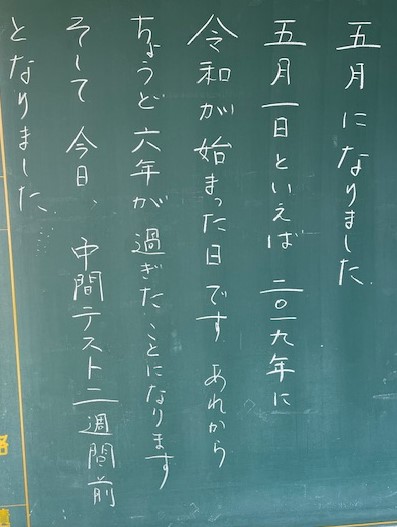 五月になりました
五月一日といえば 二〇一九年に
令和が始まった日です あれから
ちょうど六年が過ぎたことになります
そして今日、中間テスト二週間前
となりました